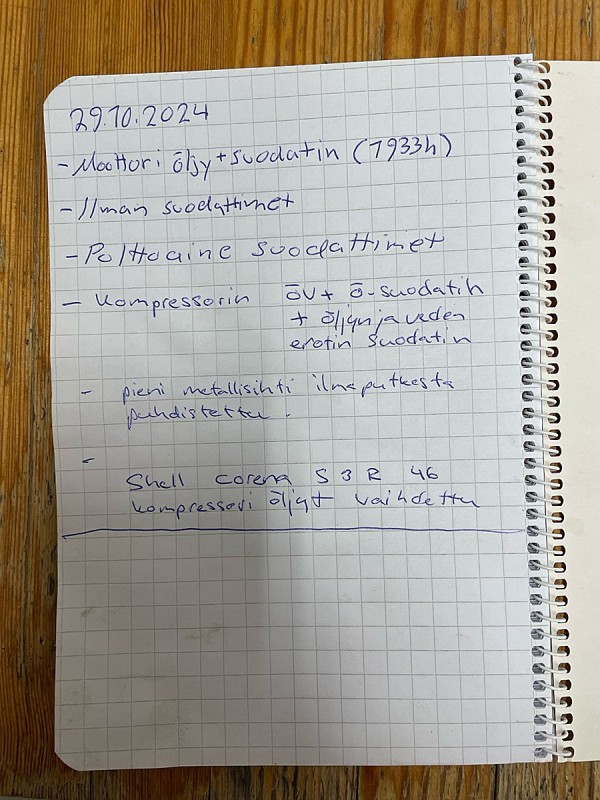 29.10.2024
- Moottori öljy + suodatin (1933h)
- Ilman suodattimet
- Polttoaine suodattimet
- Kompressorin öv + ö-suodatin
+ öljyn ja veden
erotin suodatin
- pieni metallisihti ilmaputkesta
puhdistettu.
-
Shell corena S 3 R 46
kompressori öljyt vaihdettu